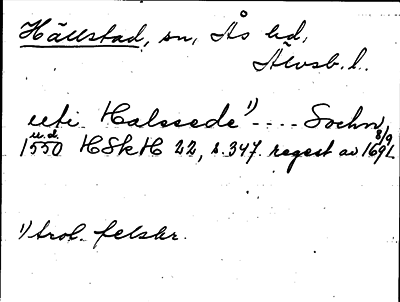 Hällstad, sn, Ås hd,
Älvsb. l.
uti Halssede 1) .... Sochn,
u.d. 8/9
1550 HSkH 22, s. 347. regest av 1691
1) trol. felskr.